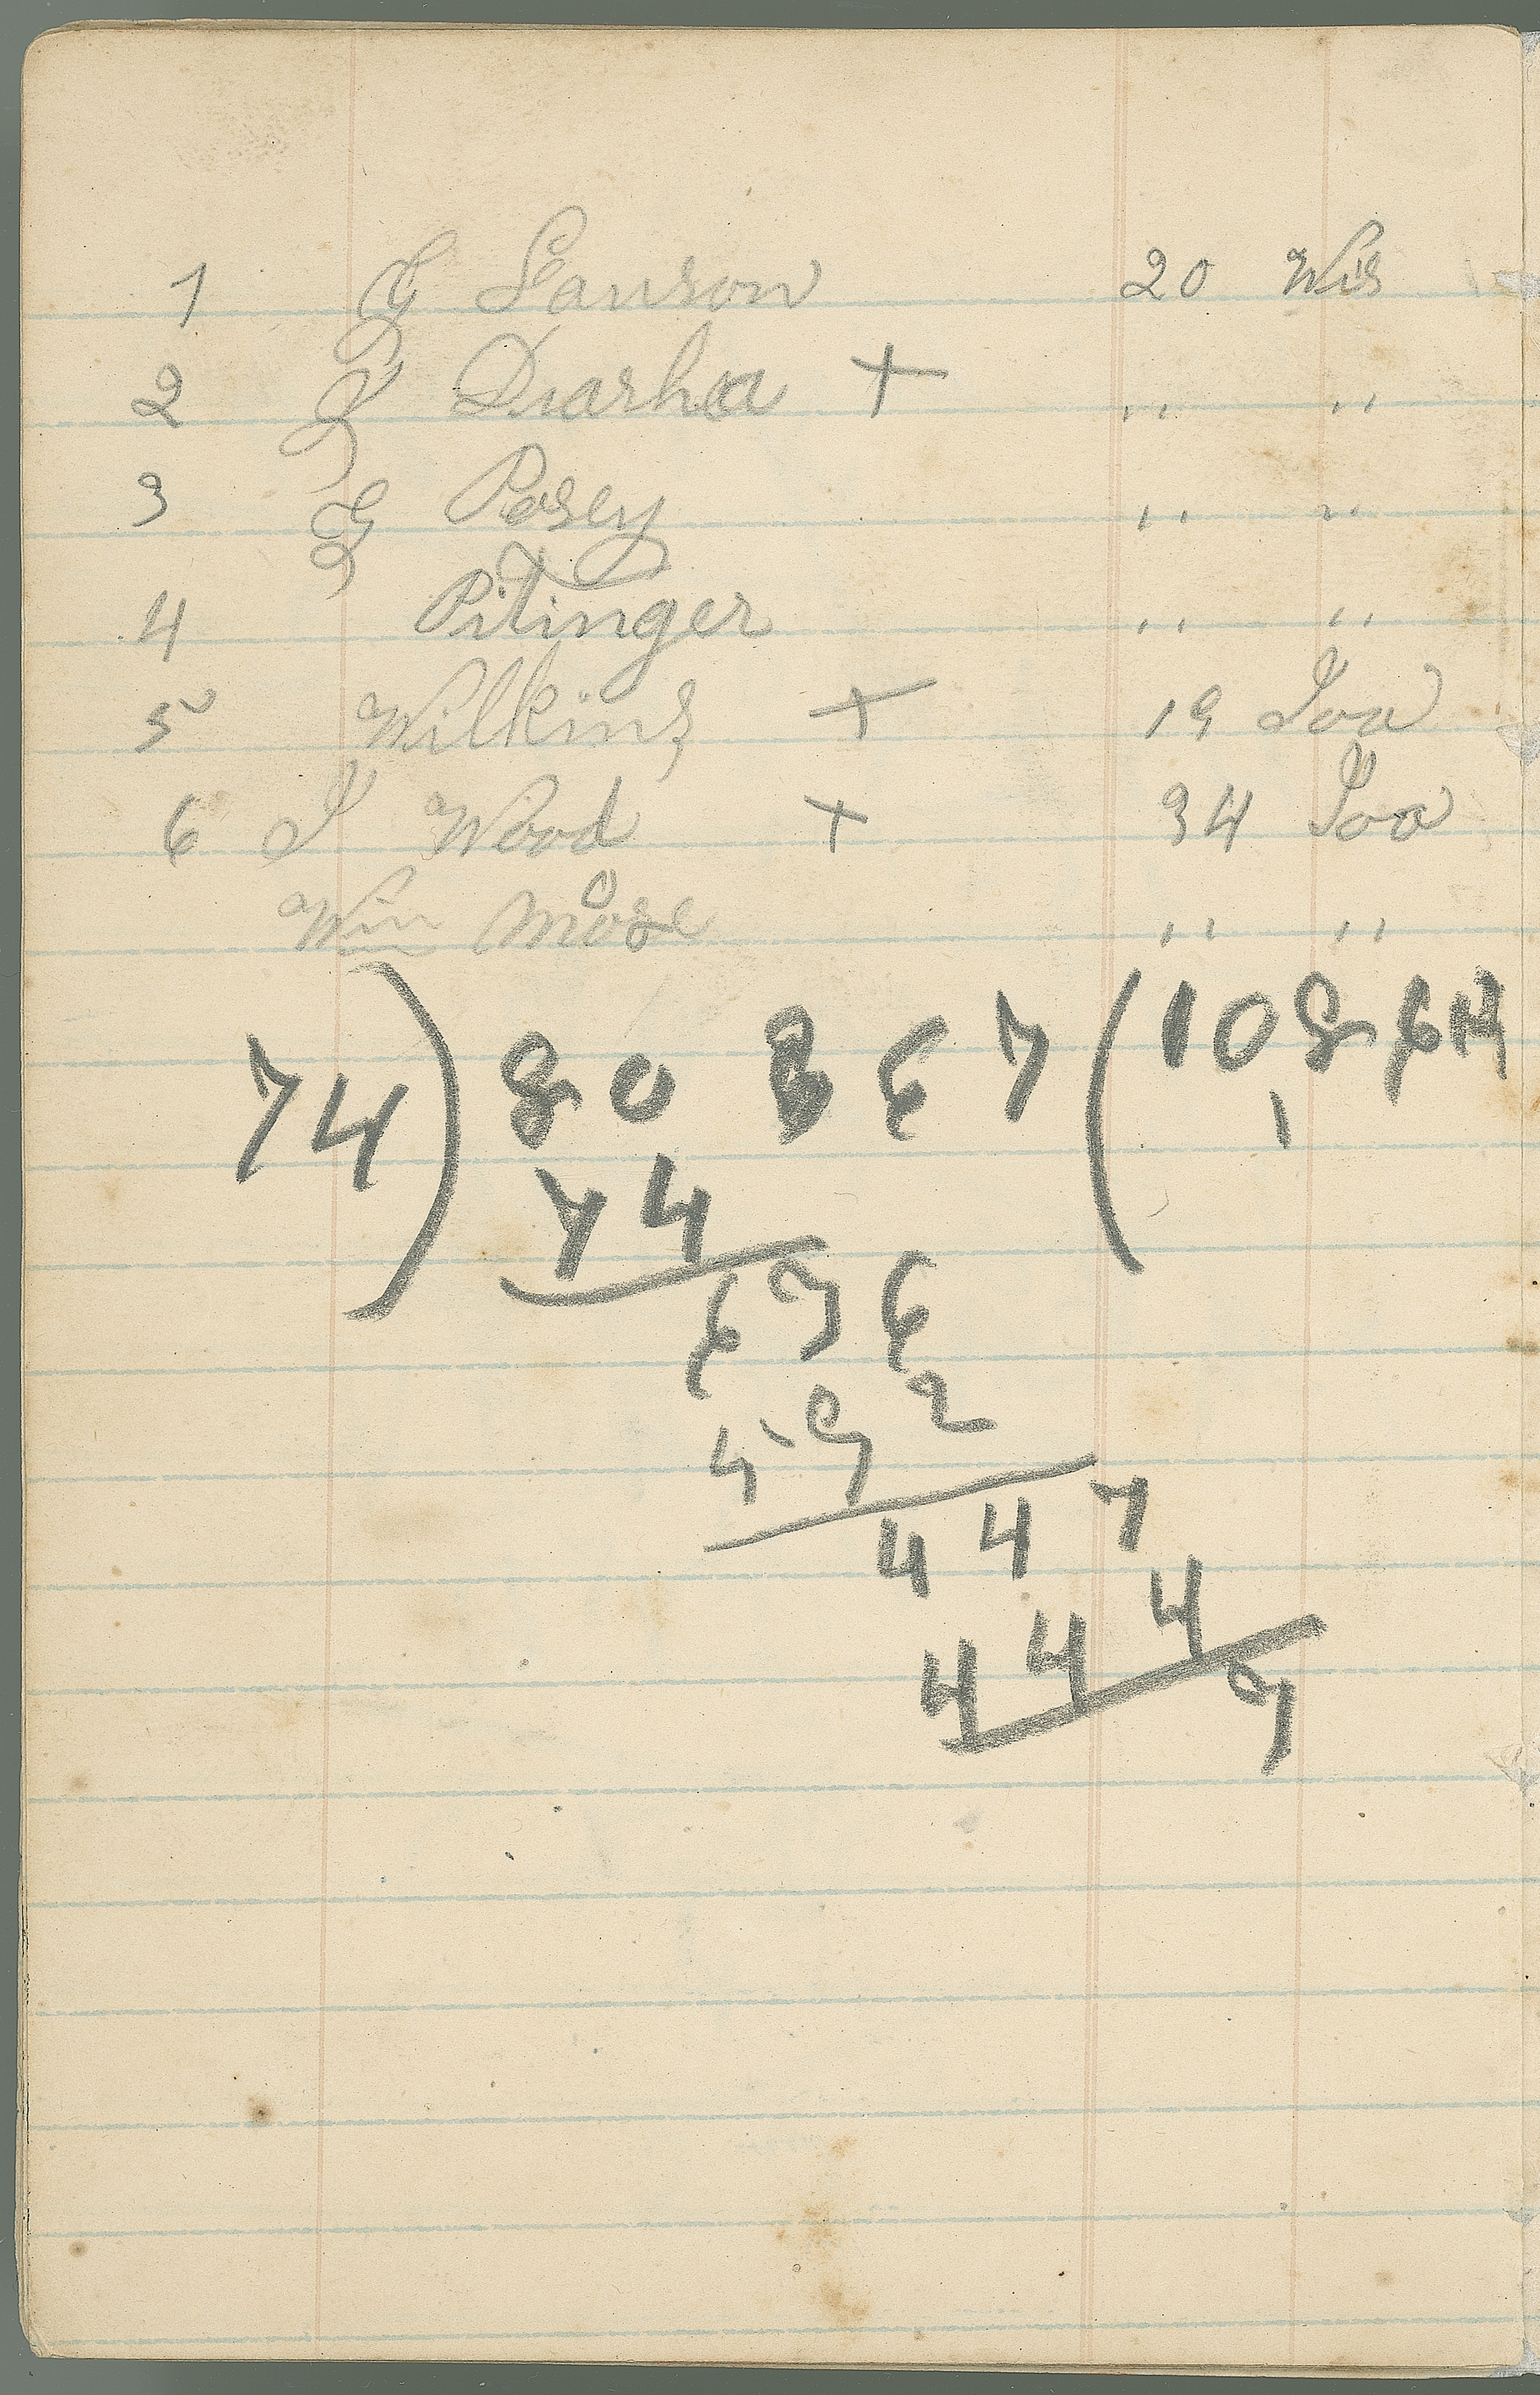 1 G Lanson 20 Wis
2 J Diarha + " "
3 G Posey " "
4 Pitinger " "
5 Wilkins + 19 Ioa
6 J Wood + 34 Ioa
Wm Mose " "
74 ) 80 3 6 7 ( 10 8 6
7 4
6 3 6
5 9 2
4 4 7
4 4 4